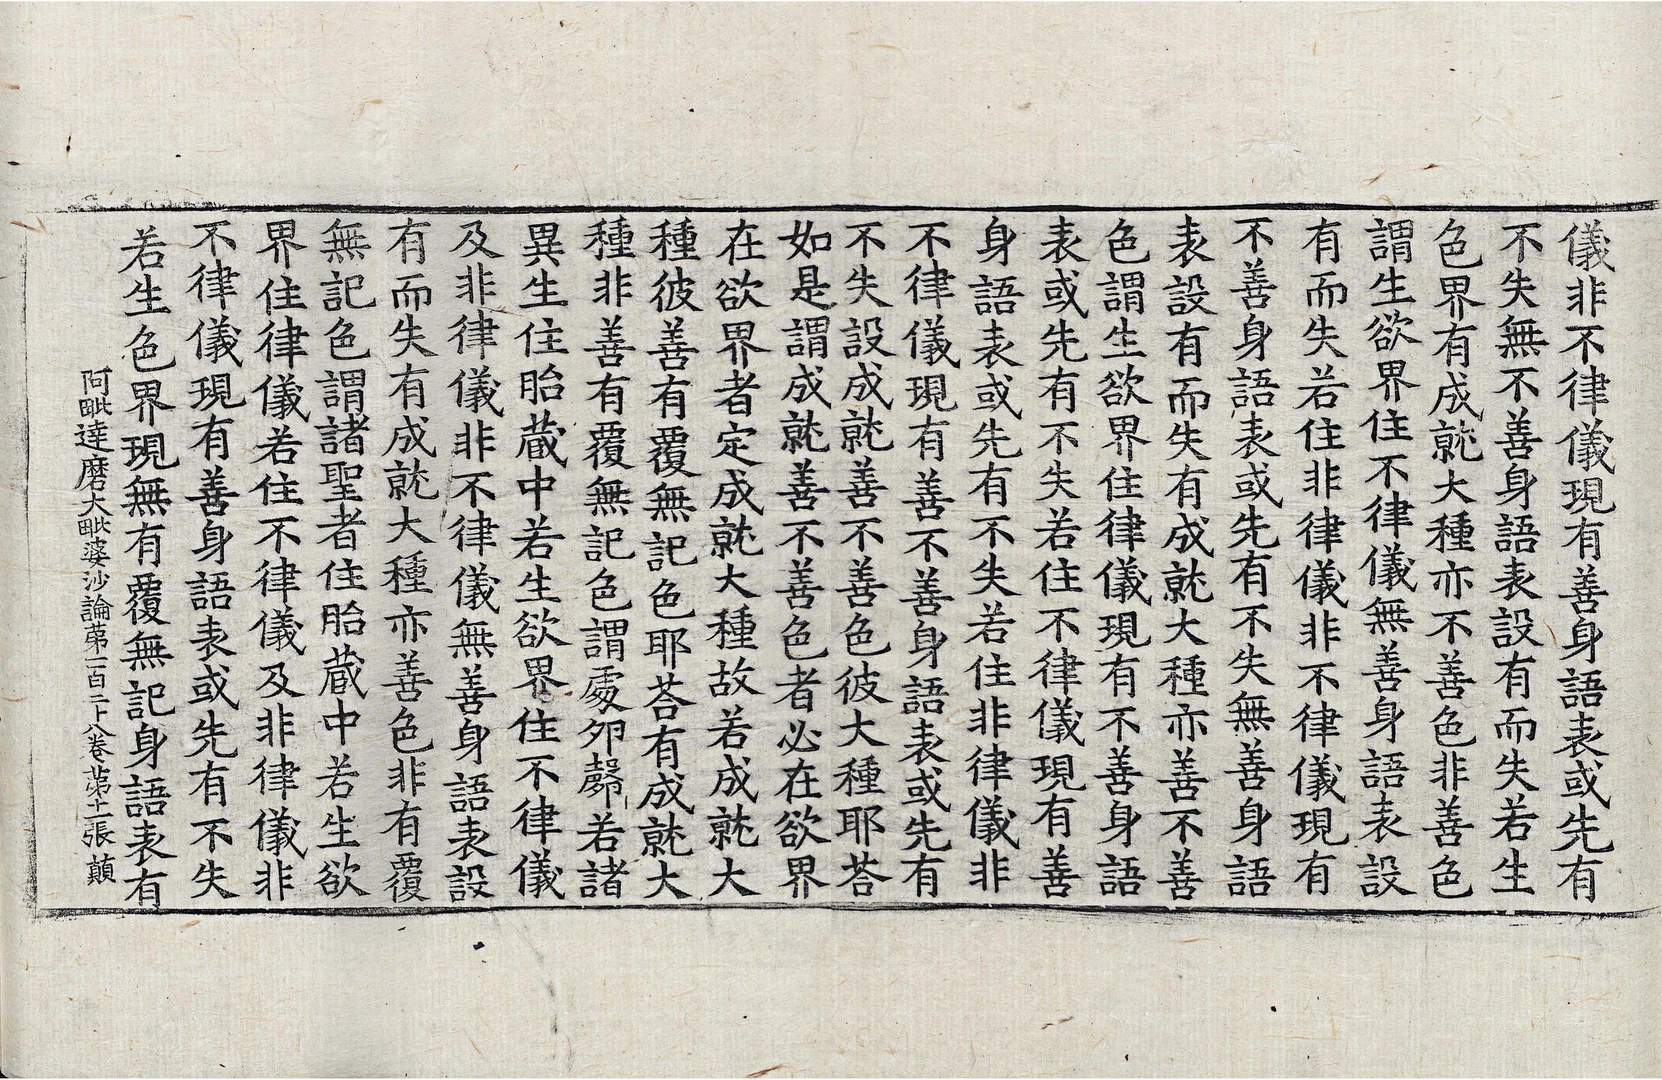 儀非不律儀現有善身語表或先有
不失無不善身語表設有而失若生
色界有成就大種亦不善色非善色
謂生欲界住不律儀無善身語表設
有而失若住非律儀非不律儀現有
不善身語表或先有不失無善身語
表設有而失有成就大種亦善不善
色謂生欲界住律儀現有不善身語
表或先有不失若住不律儀現有善
身語表或先有不失若住非律儀非
不律儀現有善不善身語表或先有
不失設成就善不善色彼大種耶荅
如是謂成就善不善色者必在欲界
在欲界者定成就大種故若成就大
種彼善有覆無記色耶荅有成就大
種非善有覆無記色謂處卵㲉若諸
異生住胎藏中若生欲界住不律儀
及非律儀非不律儀無善身語表設
有而失有成就大種亦善色非有覆
無記色謂諸聖者住胎藏中若生欲
界住律儀若住不律儀及非律儀非
不律儀現有善身語表或先有不失
若生色界現無有覆無記身語表有
阿毗達磨大毗婆沙論第一百二十八卷第十二張 顛